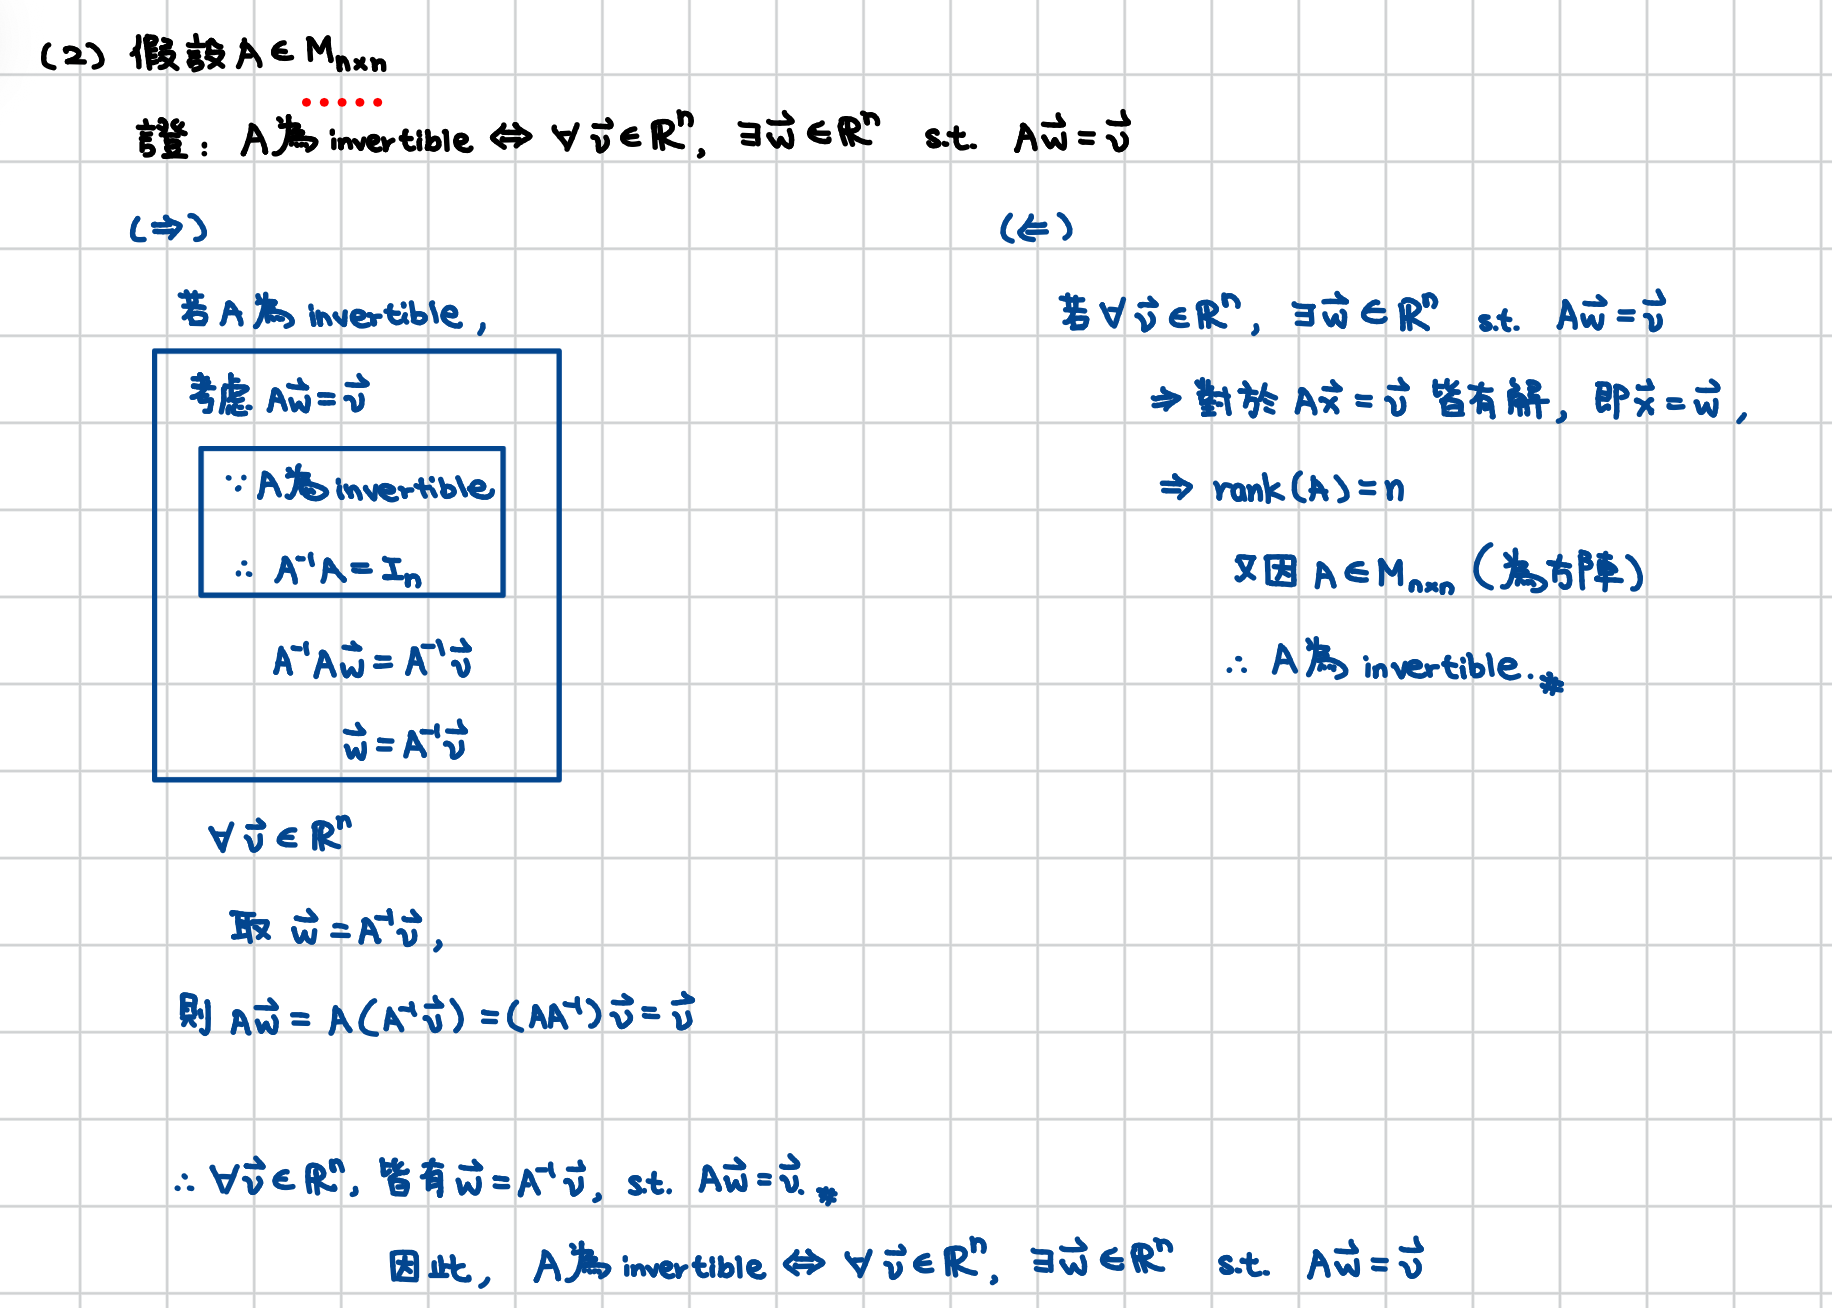 (2) 假設 A ∈ Mₙₓₙ
證: A為 invertible ⇔ ∀ v⃗ ∈ ℝⁿ, ∃ w⃗ ∈ ℝⁿ s.t. Aw⃗ = v⃗
(⇒)
若 A 為 invertible,
考慮 Aw⃗ = v⃗
∵ A為 invertible
∴ A⁻¹A = Iₙ
A⁻¹Aw⃗ = A⁻¹v⃗
w⃗ = A⁻¹v⃗
∀ v⃗ ∈ ℝⁿ
取 w⃗ = A⁻¹v⃗,
則 Aw⃗ = A(A⁻¹v⃗) = (AA⁻¹)v⃗ = v⃗
∴ ∀ v⃗ ∈ ℝⁿ, 皆有 w⃗ = A⁻¹v⃗, s.t. Aw⃗ = v⃗. *
(⇐)
若 ∀ v⃗ ∈ ℝⁿ, ∃ w⃗ ∈ ℝⁿ s.t. Aw⃗ = v⃗
⇒ 對於 Ax⃗ = v⃗ 皆有解, 即 x⃗ = w⃗,
⇒ rank(A) = n
又因 A ∈ Mₙₓₙ (為方陣)
∴ A為 invertible. *
因此, A為 invertible ⇔ ∀ v⃗ ∈ ℝⁿ, ∃ w⃗ ∈ ℝⁿ s.t. Aw⃗ = v⃗